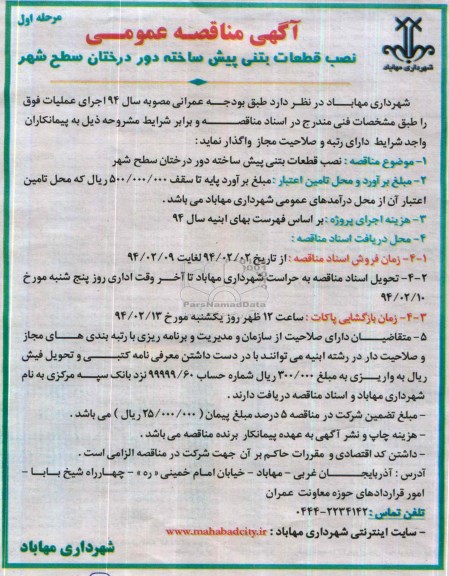 مرحله اول
آگهی مناقصه عمومی
نصب قطعات بتنی پیش ساخته دور درختان سطح شهر
شهرداری مهاباد
شهرداری مهاباد در نظر دارد طبق بودجه عمرانی مصوبه سال ۹۴ اجرای عملیات فوق
را طبق مشخصات فنی مندرج در اسناد مناقصه و برابر شرایط مشروحه ذیل به پیمانکاران
واجد شرایط دارای رتبه و صلاحیت مجاز واگذار نماید:
۱- موضوع مناقصه : نصب قطعات بتنی پیش ساخته دور درختان سطح شهر
۲- مبلغ برآورد و محل تامین اعتبار : مبلغ برآورد پایه تا سقف ۵۰۰/۰۰۰/۰۰۰ ریال که محل تامین
اعتبار آن از محل درآمدهای عمومی شهرداری مهاباد می باشد .
۳- هزینه اجرای پروژه : بر اساس فهرست بهای ابنیه سال ۹۴
۴- محل دریافت اسناد مناقصه :
۴-۱- زمان فروش اسناد مناقصه : از تاریخ ۹۴/۰۲/۰۲ لغایت ۹۴/۰۲/۰۹
۴-۲- تحویل اسناد مناقصه به حراست شهرداری مهاباد تا آخر وقت اداری روز پنج شنبه مورخ
۹۴/۰۲/۱۰
ParsNamadData
۴-۳- زمان بازگشایی پاکات : ساعت ۱۲ ظهر روز یکشنبه مورخ ۹۴/۰۲/۱۳
۵- متقاضیان دارای صلاحیت از سازمان و مدیریت و برنامه ریزی با رتبه بندی های مجاز
و صلاحیت دار در رشته ابنیه می توانند با در دست داشتن معرفی نامه کتبی و تحویل فیش
ریال به واریزی به مبلغ ۳۰۰/۰۰۰ ریال شماره حساب ۹۹۹۹۹/۶۰ نزد بانک سپه مرکزی به نام
شهرداری مهاباد و اسناد مناقصه دریافت دارند .
- مبلغ تضمین شرکت در مناقصه ۵ درصد مبلغ پیمان ( ۲۵/۰۰۰/۰۰۰ ریال ) می باشد .
- هزینه چاپ و نشر آگهی به عهده پیمانکار برنده مناقصه می باشد .
- داشتن کد اقتصادی و مقررات حاکم بر آن جهت شرکت در مناقصه الزامی است .
آدرس : آذربایجان غربی - مهاباد - خیابان امام خمینی « ره » - چهارراه شیخ بابا -
امور قراردادهای حوزه معاونت عمران
تلفن تماس : ۲۲۳۴۱۴۲-۰۴۴۴
- سایت اینترنتی شهرداری مهاباد : www.mahabadcity.ir
شهرداری مهاباد